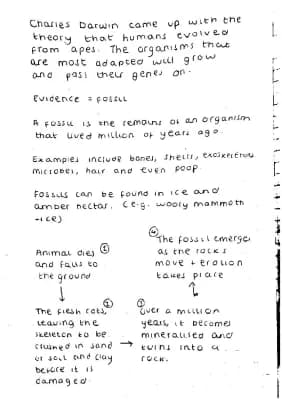 Charles Darwin came up with the
theory that humans evolved
from apes. The organisms that
are most adapted will grow
and pass their genes on.
Evidence = Fossil
A fossil is the remains of an organism
that lived million of years ago.
Examples include bones, shells, exoskeletons
microbes, hair and even poop.
Fossils can be found in ice and
amber nectar. (e.g. wooly mammoth
- ice)
Animal dies ①
and falls to
the ground
The flesh rots, ②
leaving the
skeleton to be
crushed in sand
or soil and clay
before it is
damaged.
③ Over a million
years, it becomes
mineralised and
turns into a
rock.
④ The fossil emerges
as the rocks
move + erosion
takes place